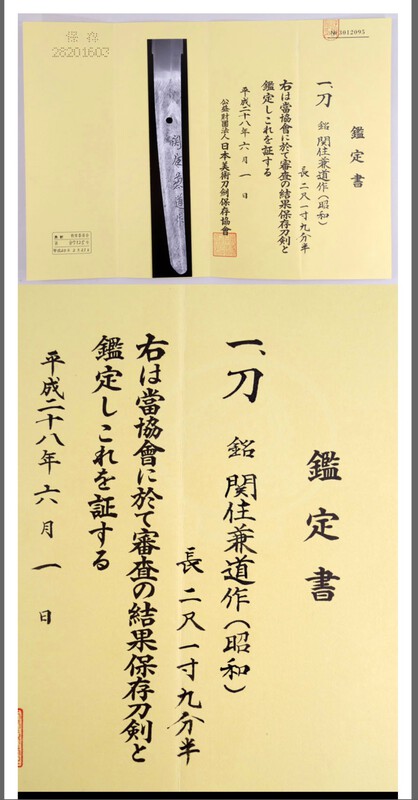 保存
28201603
№3012095
鑑定書
一、刀 銘 関住兼道作(昭和)
長 二尺一寸九分半
右は當協會に於て審査の結果保存刀剣と
鑑定しこれを証する
平成二十八年六月一日
公益財團法人日本美術刀剣保存協會
関住兼道作
鑑定書
一、刀 銘 関住兼道作(昭和)
長 二尺一寸九分半
右は當協會に於て審査の結果保存刀剣と
鑑定しこれを証する
平成二十八年六月一日